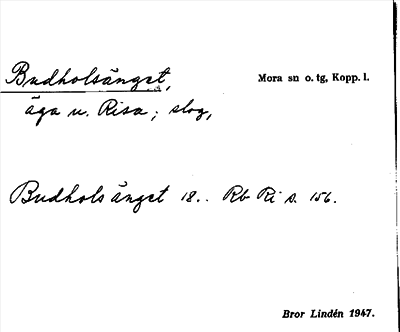 Budholsänget, Mora sn o. tg, Kopp. l.
äga u. Risa; slog,
Budholsänget 18.. Rb Ri s. 156.
Bror Lindén 1947.